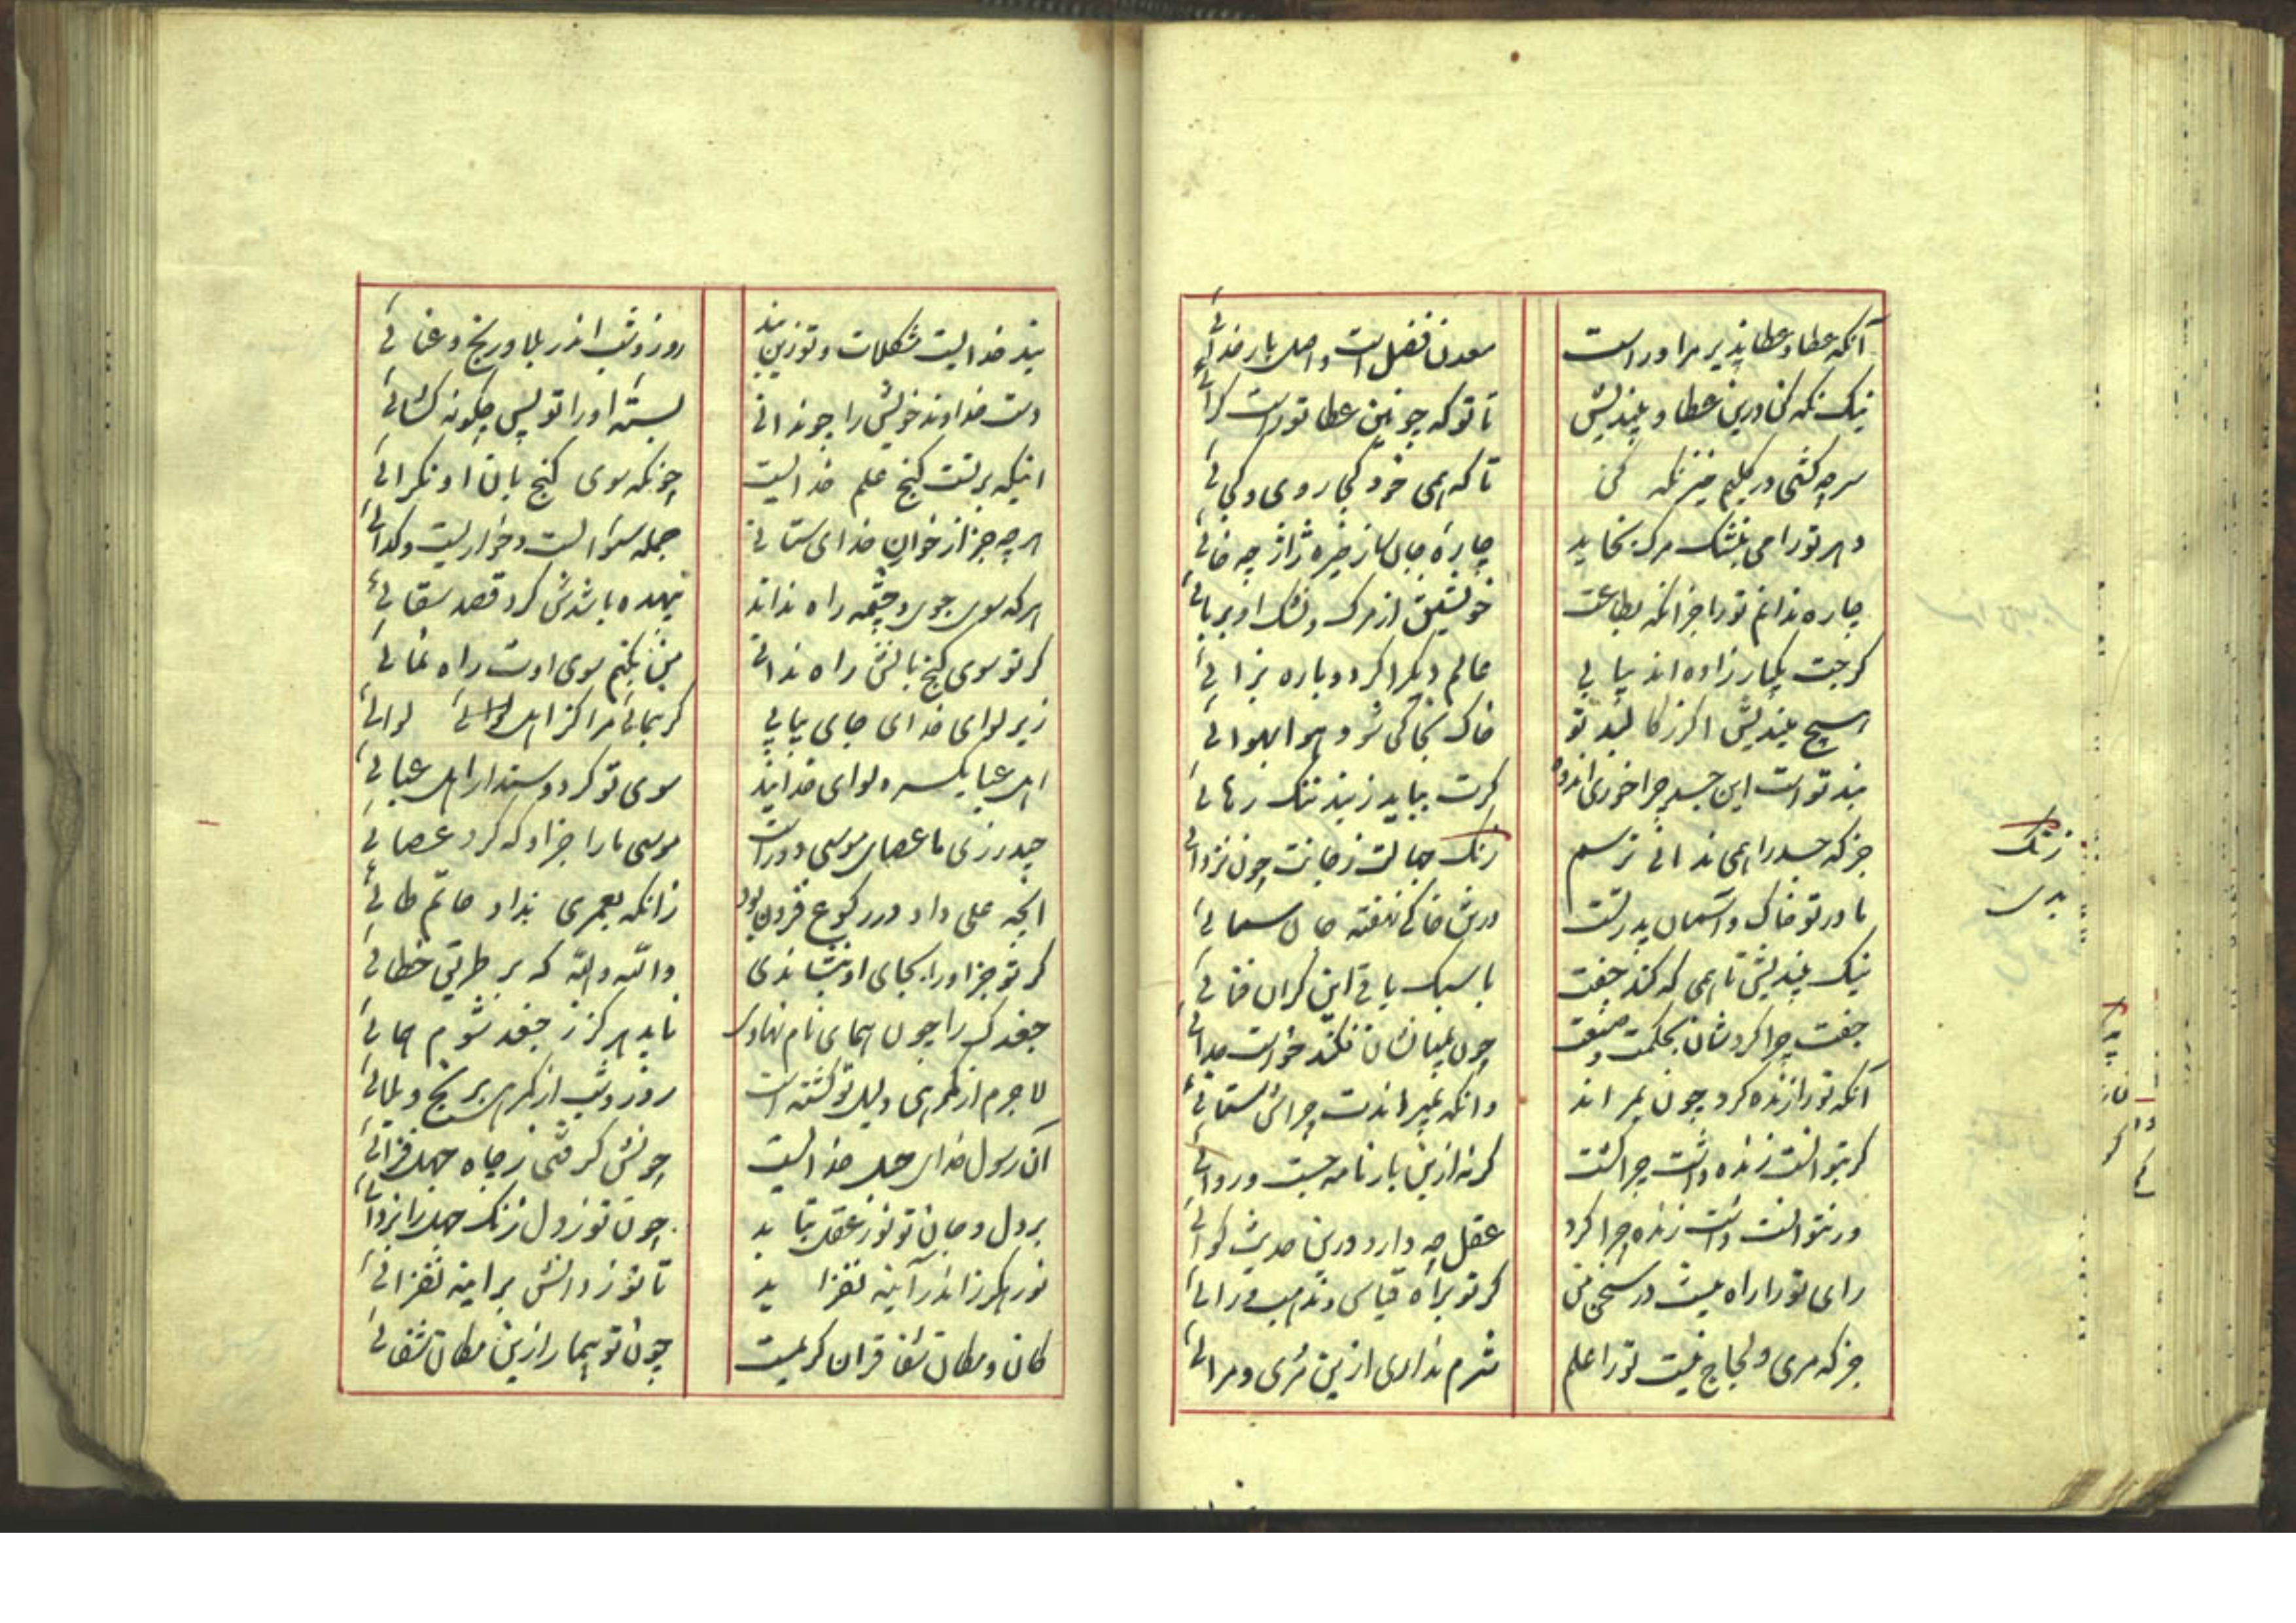 آنکه عطا و عطا پذیر مر او راست
معدن فضل است و اصل بار خدائی
نیک نگه کن درین عطا و بیندیش
تا تو که چونین عطا تو راست کرائی
سر چه کشی در گلیم خیز نگه کن
تا که همی خود کجا روی و کجائی
دهر تو را می بنشک مرگ بخاید
چاره جان ساز خیره ژاژ چه خائی
چاره ندانم تو را جز آنکه بطاعت
خویشتن از مرگ و نشک او بربائی
گرچت یکبار زاده اند بیابی
عالم دیگر اگر دوباره بزائی
هیچ میندیش اگر ز کالبد تو
خاک بخاکی شود هوا بهوائی
بند تو است این جسد چرا خوری اندوه
گرت بباید ز بند تنگ رهائی
جز که جسد را همی ندانی ترسم
زنگ جهالت ز جانت چون نزدائی
مادر تو خاک و آسمان پدر تست
در تن خاکی نهفته جان سمائی
نیک بیندیش تا همی که کند جفت
با سبک باقی این گران فنائی
جفت چرا کردشان بحکمت و صنعت
چون بمیانشان فکند خواست جدائی
آنکه تو را زنده کرد چون بمراند
وانکه بمیراندت چراش ستائی
گر بتوانست زنده داشت چرا کشت
گر نه ازین بارنامه جست و روائی
ور نتوانست داشت زنده چرا کرد
عقل چه دارد درین حدیث گوائی
رای تو را راه نیست در سخن من
گر تو براه قیاس و مذهب و رائی
جز که مری و لجاج نیست تو را علم
شرم نداری ازین مری و مرائی
زنگ
بدی
بند خدائیست مشکلات و تو زین بند
روز و شب اندر بلا و رنج و عنائی
دست خداوند خویش را چو ندانی
بسته او را تو پس چگونه گشائی
اینکه بر تست گنج علم خدائیست
چونکه سوی گنج بان او نگرائی
هرچه جز از خوان خدای ستانی
جمله سؤالست و خواریست و گدائی
هرکه سوی جوی و چشمه راه نداند
بیهده باشدش کرد قصد سقائی
گر تو سوی گنج بانش راه ندانی
من بکنم سوی اوت راه نمائی
زیر لوای خدای جای بیابی
گر بنمائی مرا کز اهل لوائی
اهل عبا یکسره لوای خدایند
سوی تو گر دوستدار اهل عبائی
حیدر زی ما عصای موسی دورست
موسی ما را جز او که کرد عصائی
آنچه علی داد در رکوع فزون بود
زانکه بعمری بداد حاتم طائی
گر تو جز او را بجای او بنشاندی
والله والله که بر طریق خطائی
جغدک را چون همای نام نهادی
ناید هرگز ز جغد شوم همائی
لاجرم از گمرهی دلیل تو گشته است
روز و شب از گمرهی برنج و بلائی
آن رسول خدای حبل خدائیست
چونش گرفتی ز چاه جهل فرائی
بر دل و جان تو نور عقل بتابد
چون تو ز دل زنگ جهل را بزدائی
نور هرگز اندر آینه نفزاید
تا تو ز دانش بر آینه نفزائی
کان و مکان شفا قران کریمست
چون تو بیمار ازین مکان شفائی